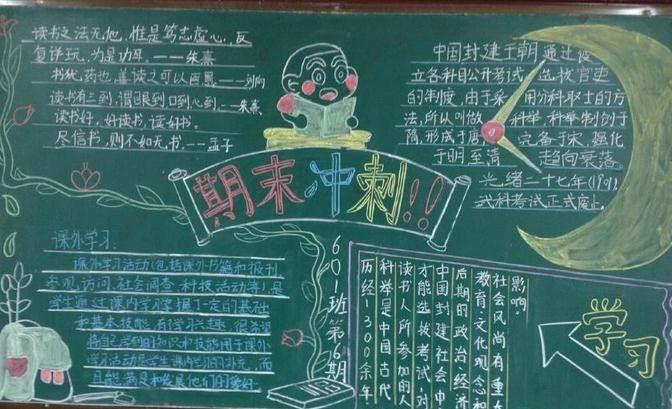 读书之法无他,惟是笃志虚心,反
复详玩,为是功耳。——朱熹
书犹药也,善读之可以医愚——刘向
读书有三到,谓眼到口到心到——朱熹
读书好,好读书,读好书。
尽信书,则不如无书。--孟子
中国封建王朝通过设
立各科目公开考试、选拔官吏
的制度,由于采用分科取士的方
法,所以叫做科举,科举制创于
隋,形成于唐,完备于宋,强化
于明至清 趋向衰落
光绪二十七年(1901
武科考试正式废止.
期末冲刺!!
课外学习:
课外学习活动(包括课外书籍和报刊
参观,访问,社会调查,科技活动等)是
学生通过课内学习掌握了一定的基础
和基本技能,有学习兴趣,很希望
将自己学到的知识和技能用于课外
学习活动是学生课内学习的补充,而
且能满足和发展他们的爱好.
601班第6期
影响:
社会风尚有重大
教育·文化观念和
后期的政治·经济
中国封建社会中
才能选拔考试·对
读书人所参加的人
科举是中国古代
历经1300余年·
学习